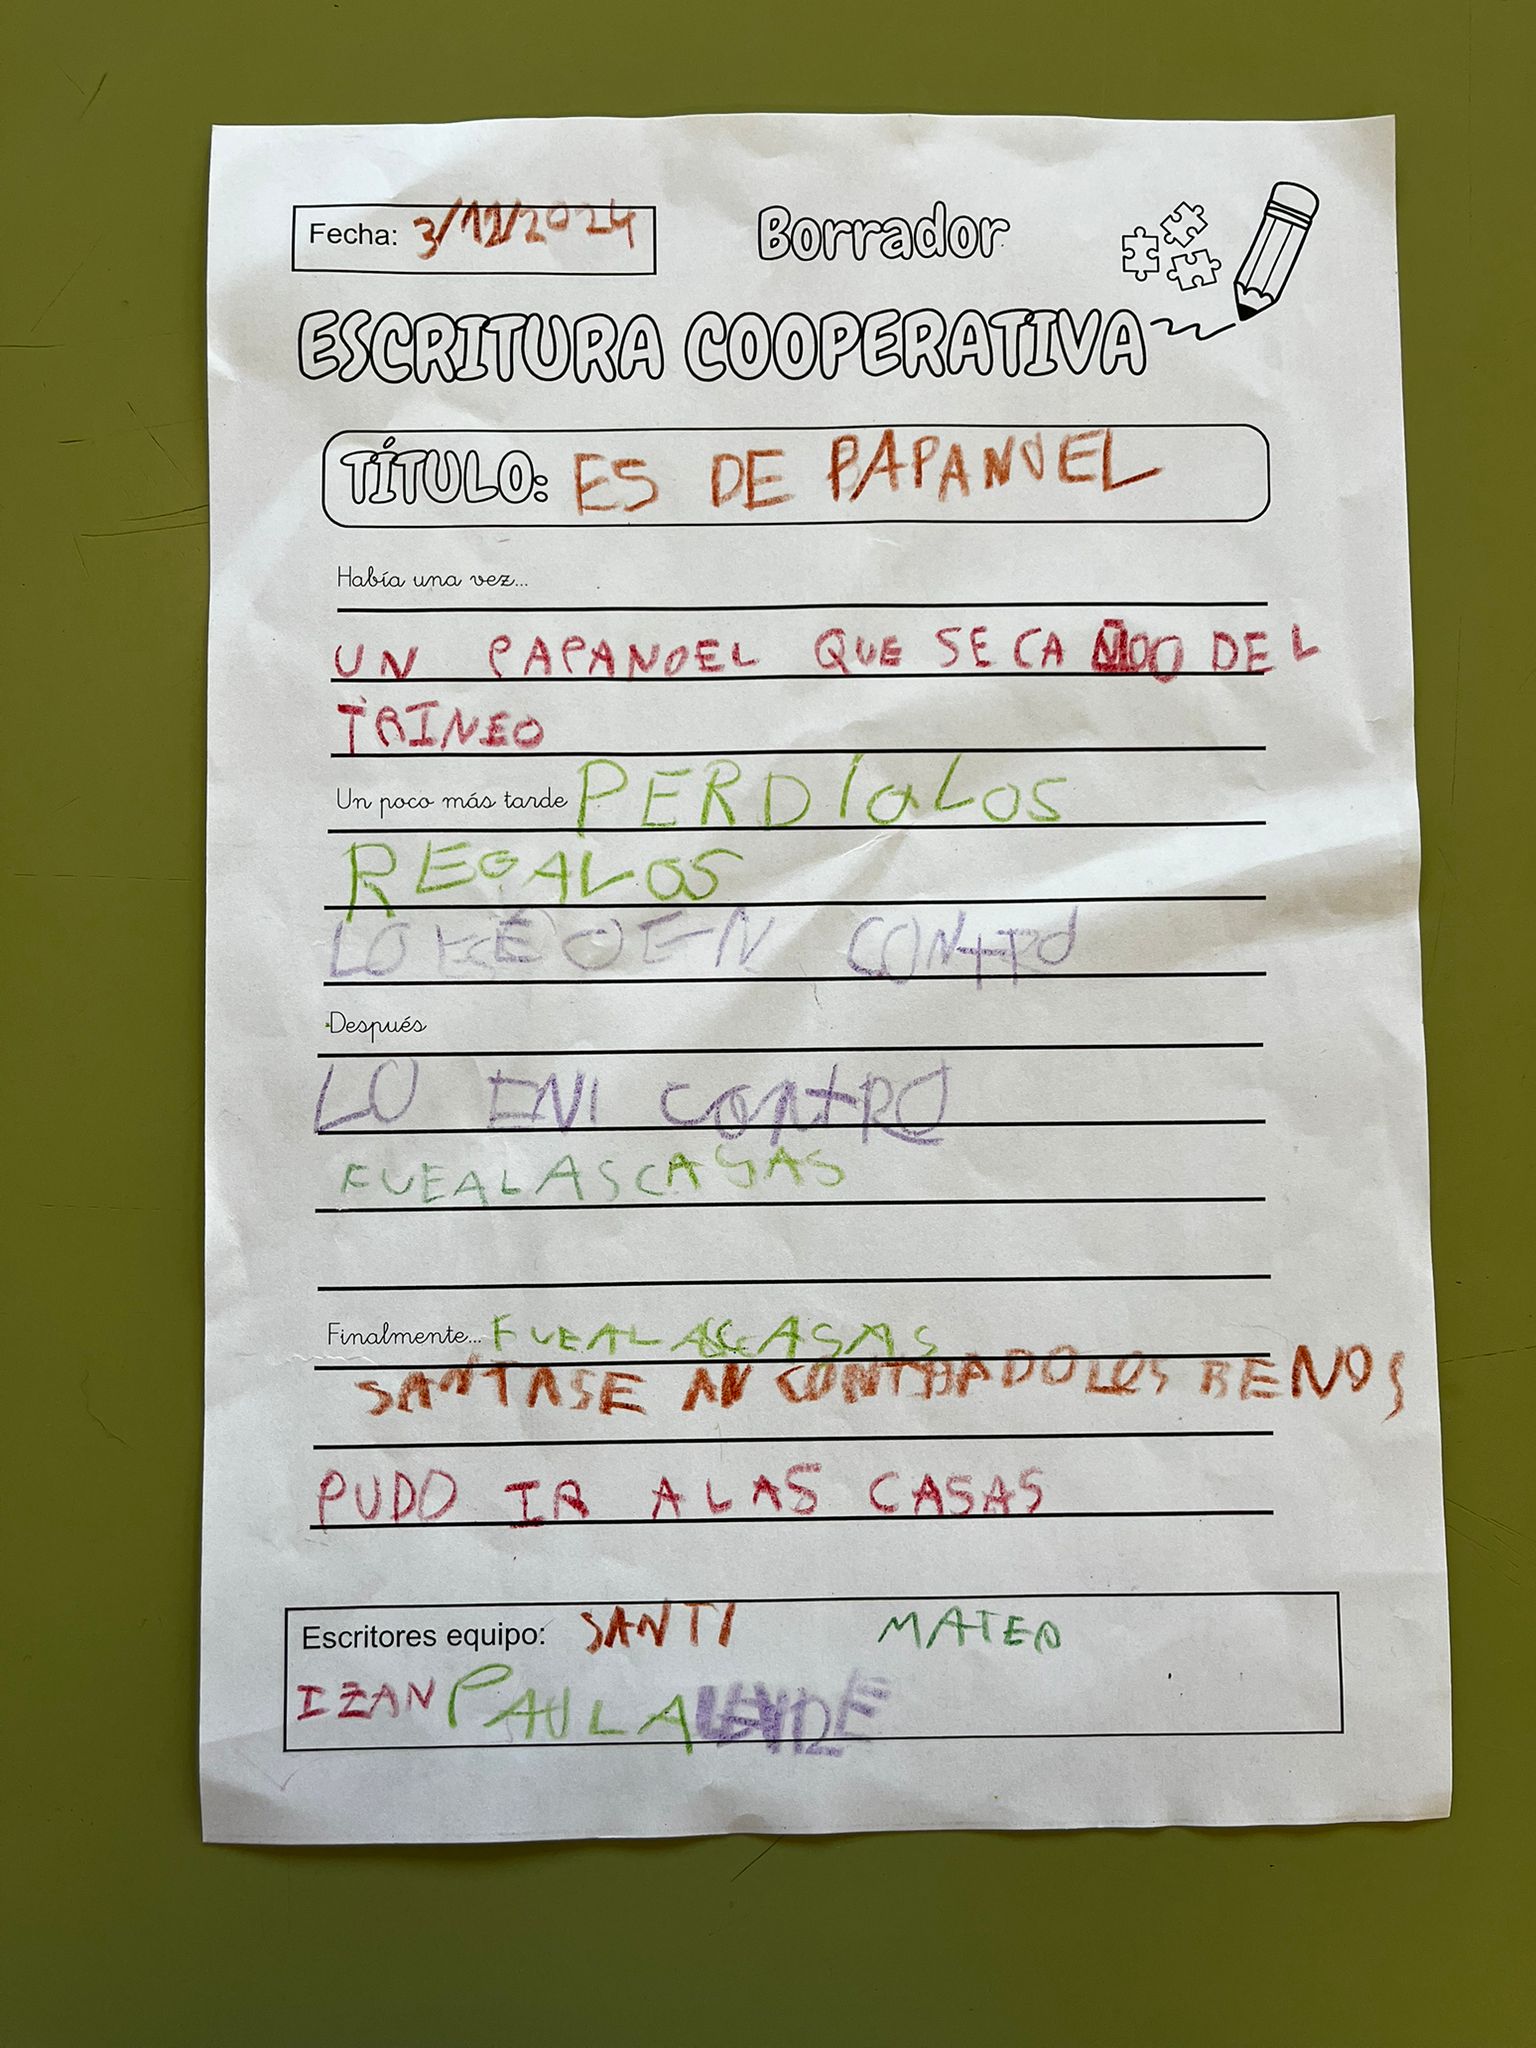 Fecha: 3/12/2024
Borrador
ESCRITURA COOPERATIVA
TÍTULO: ES DE PAPANOEL
Había una vez...
UN PAPANOEL QUE SE CA DEL
TRINEO
Un poco más tarde PERDIO LOS
REGALOS
CONTRO
Después
LO ENI CONTRO
FUEALASCASAS
Finalmente... FUEALASCASAS
SANTASE AN CONTRADO LOS RENOS
PUDO IR A LAS CASAS
Escritores equipo: SANTI MATEO
IZAN PAULA